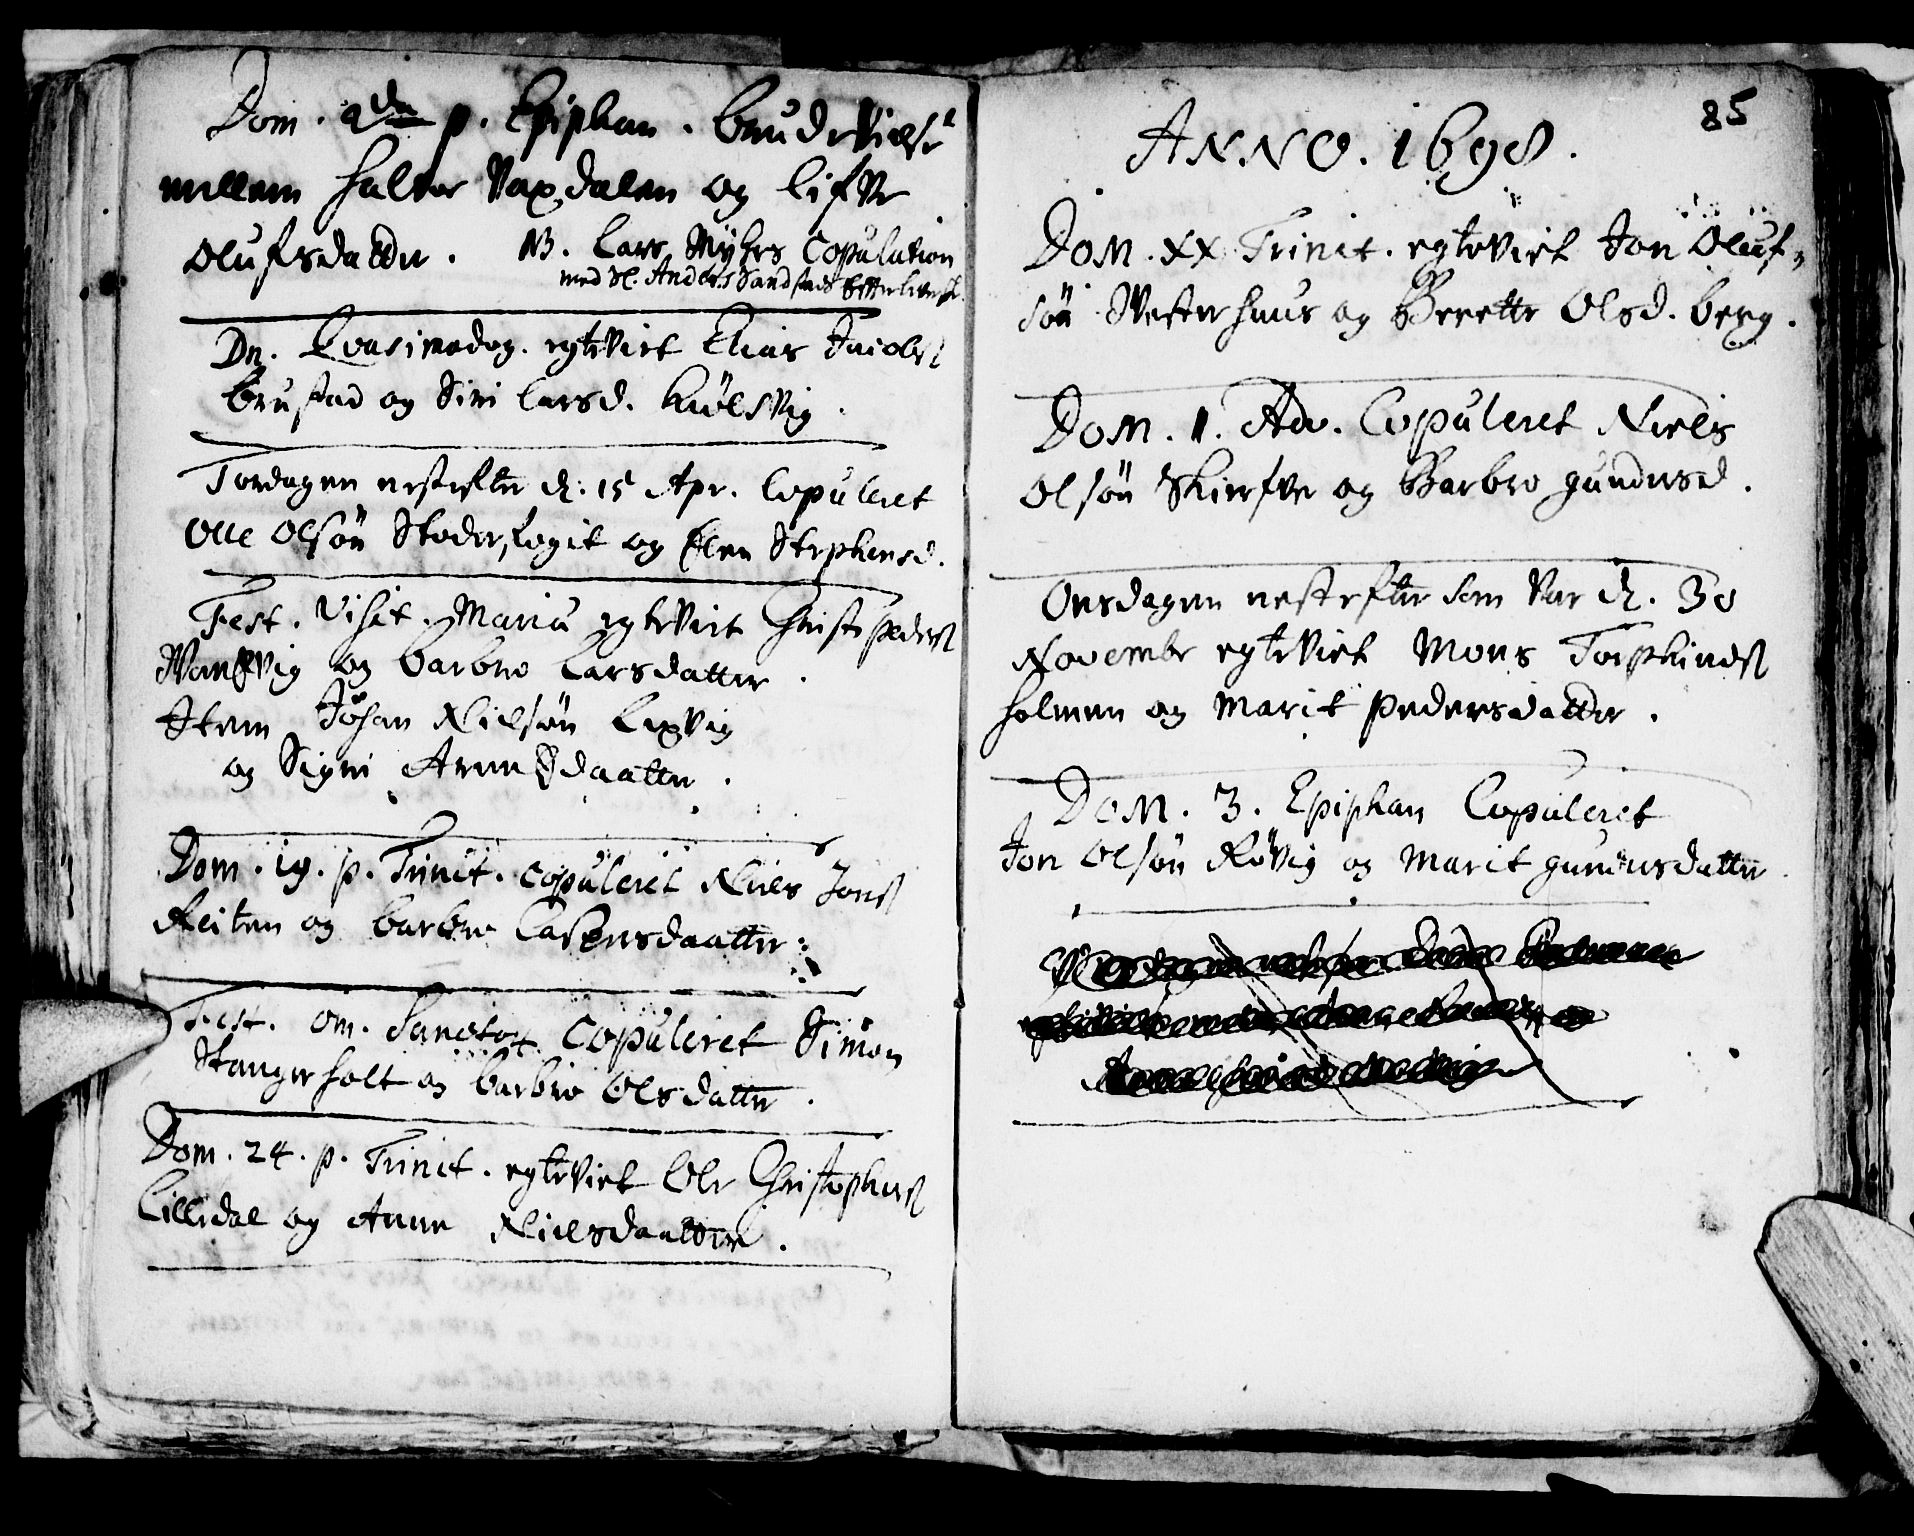 Dom. 2da p. Epiphan. brudeVielse
mellem Halvor Vaxdalen og Lifve
Olufsdatter. NB. Lars Myhrs Copulation
med Sl. Anders Sandstads Efterleversk.
Dn. Qvasimodog. egteviet Elias Jacobs
Brustad og Siri Larsd. Kiölsvig.
Torsdagen nestefter d. 15 Apr. Copuleret
Olle Olsön Stoder, Fogit og Elen Stephensd.
Fest. Visit. Mariæ egteviet Christ Peders
Wansvig og Barbro Larsdatter.
Item Johan Nielsön Laxvig
og Signi Arnesdaatter.
Dom. 19. p. Trinit. Copuleret Niels Jons
Reiten og barbro Lassensdaatter.
Fest. Om. Sanctor Copuleret Simon
Stangerholt og barbro Olsdatter.
Dom. 24. p. Trinit. egteviet Ole Christophers
Lilledal og Anne Nielsdaatter.
85
ANNO. 1698.
Dom. XX Trinit. egteviet Jon Oluf-
sön Westerhuus og Berette Olsd. berg.
Dom. 1. Adv. Copuleret Niels
Olsön Skierfve og Barbro gundersd.
Onsdagen nestefter som var d. 30
Novembr egteviet Mons Torphinds
holmen og Marit Pedersdatter.
Dom. 3. Epiphan Copuleret
Jon Olsön Rövig og Marit gundersdatter.